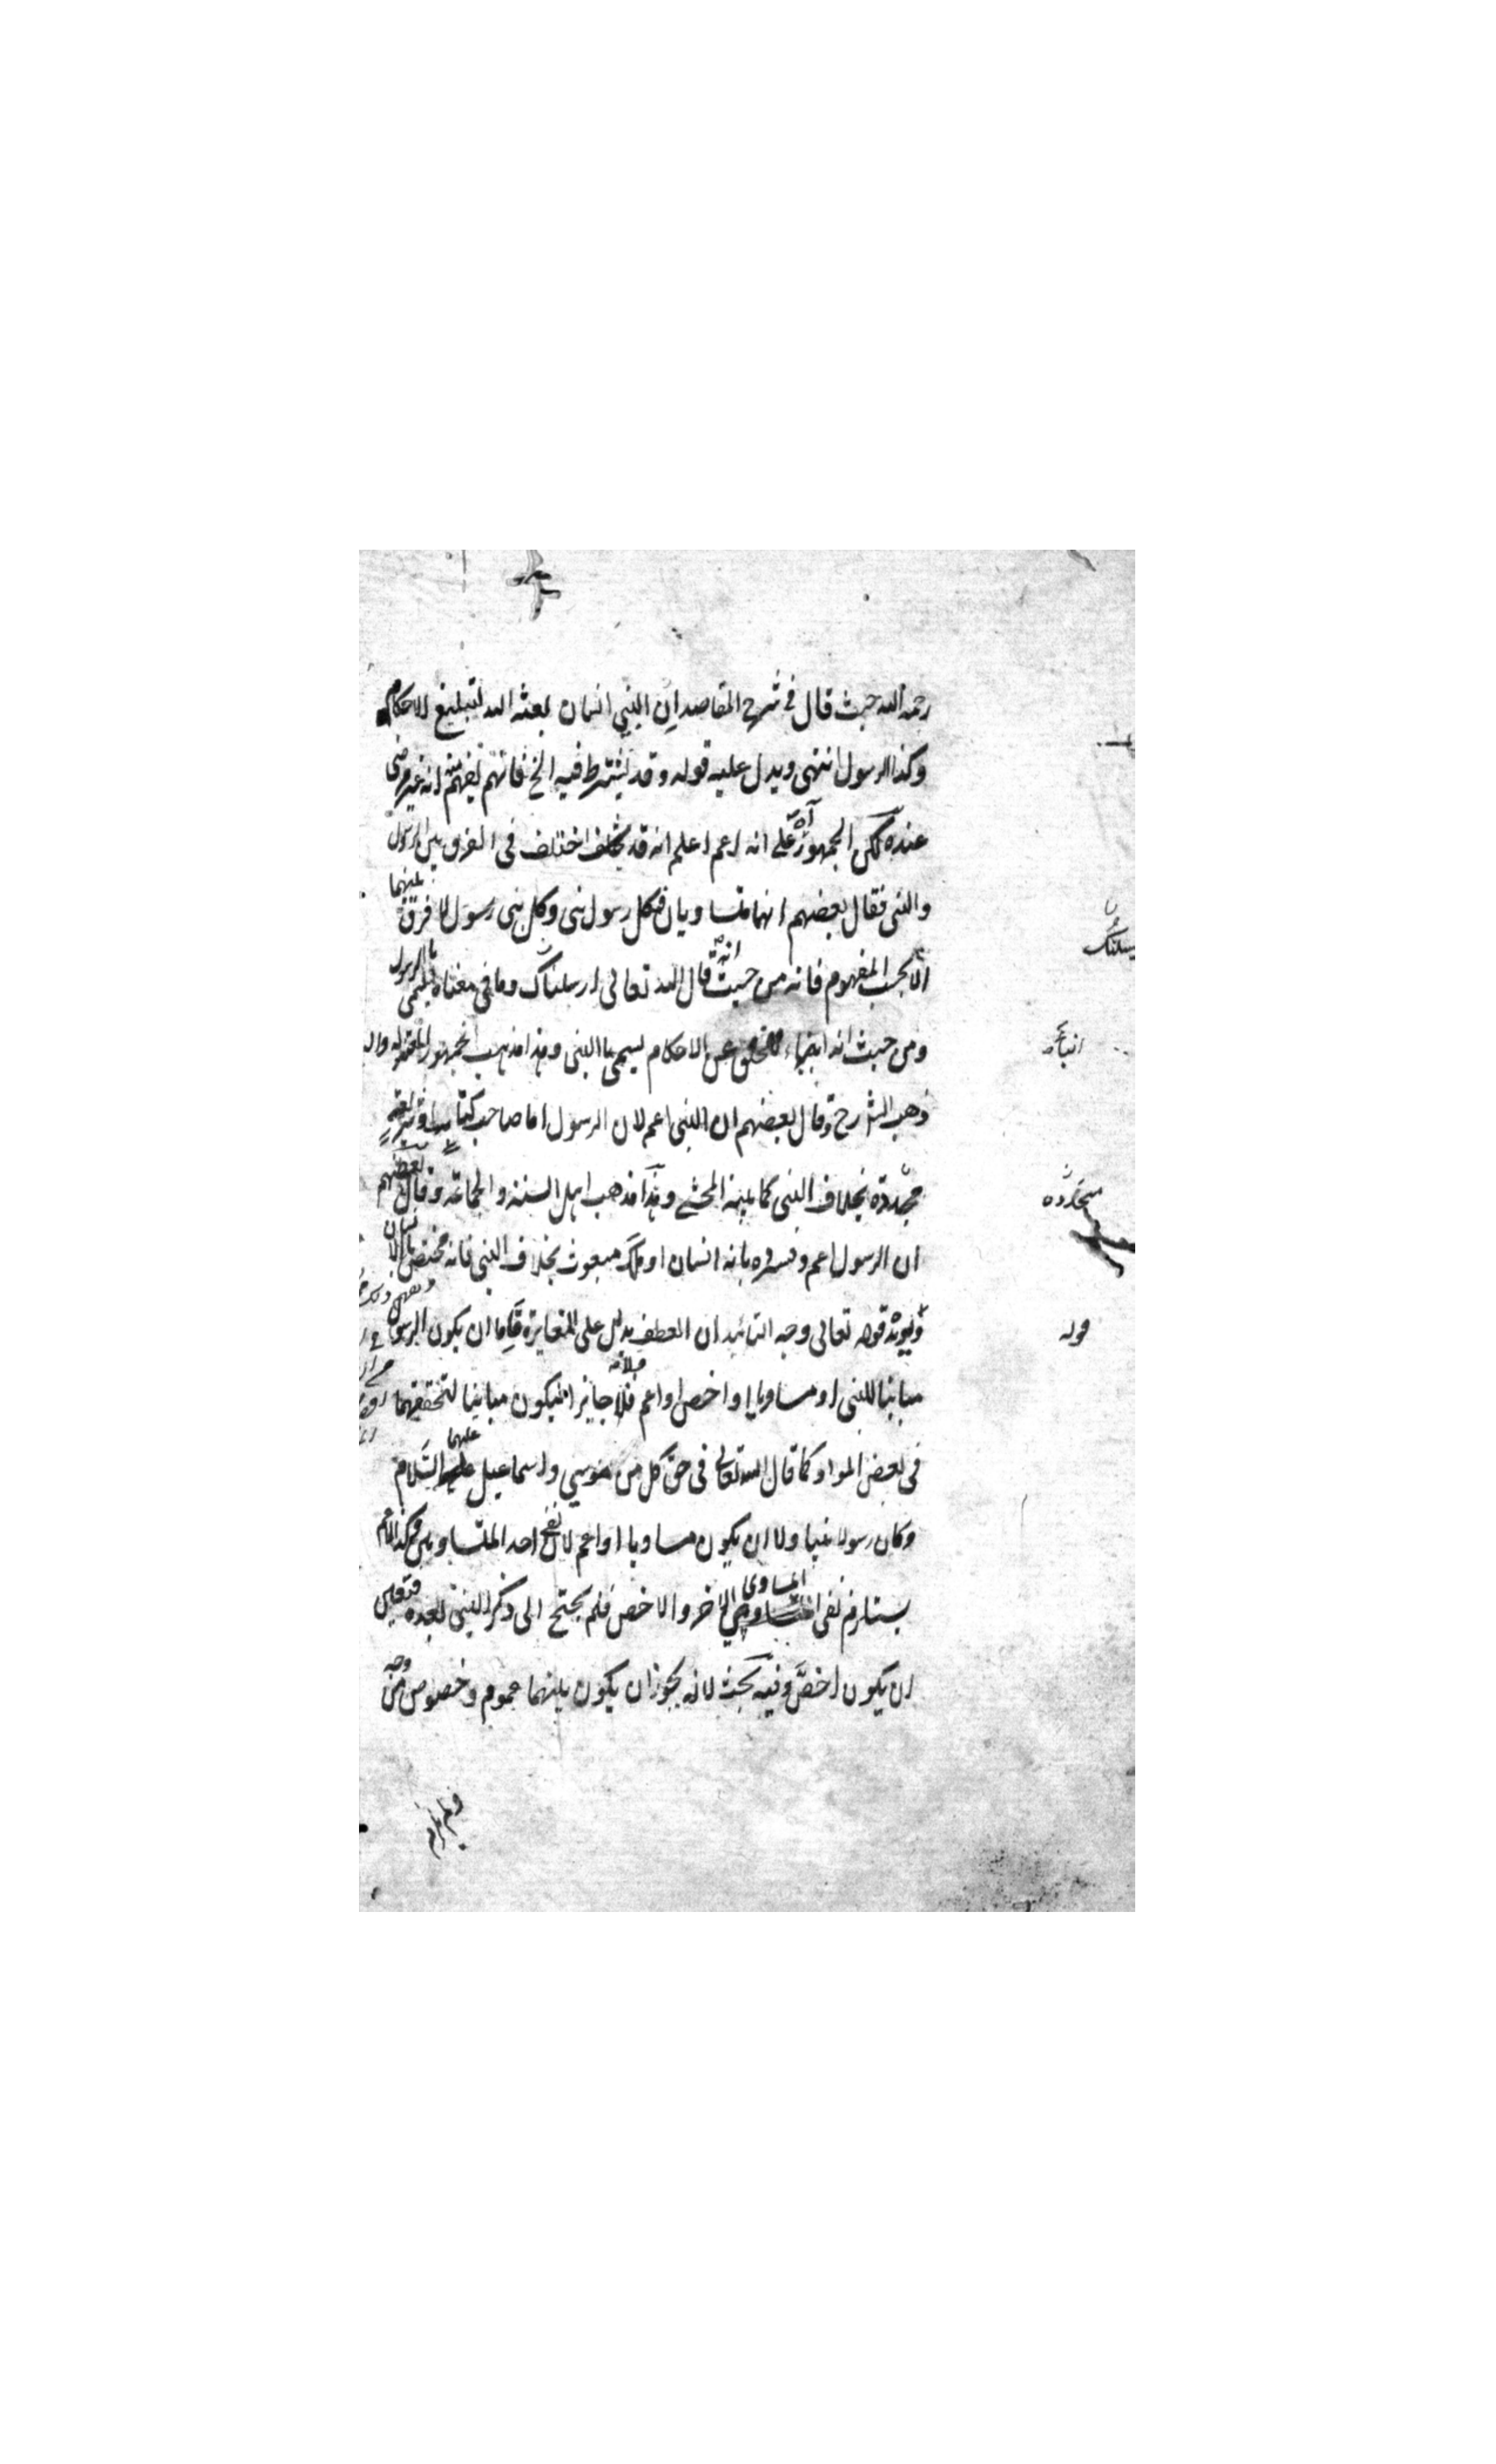 رحمه الله حيث قال في شرح المقاصد ان النبي انسان بعثه الله لتبليغ الاحكام
وكذا الرسول انتهى ويدل عليه قوله وقد يشترط فيه الخ فانهم يفهم منه انه غير مرضى
عنده لكن الجمهور على انه اعم اعلم انه قد اختلف في الفرق بين الرسول
والنبي فقال بعضهم انهما متساويان فكل رسول نبي وكل نبي رسول لا فرق بينهما
الا بحسب المفهوم فانه من حيث انه قال الله تعالى ارسلناك وما في معناه يسمى بالرسول
ومن حيث انه انباء الخلق عن الاحكام يسمى بالنبي وهذا مذهب الجمهور المعتزلة واليه
ذهب الشارح وقال بعضهم ان النبي اعم لان الرسول اما صاحب كتاب او شريعة
مجددة بخلاف النبي كما بينه المحشي وهذا مذهب اهل السنة والجماعة وقال بعضهم
ان الرسول اعم وفسره بانه انسان او ملك مبعوث بخلاف النبي فانه مختص بالانسان
ويؤيده قوله تعالى وجه التائيد ان العطف يدل على المغايرة فاما ان يكون الرسول
مباينا للنبي او مساويا او اخص او اعم فلا جايز ان يكون مباينا لتحققهما
في بعض المواد كما قال الله تعالى في حق كل من موسى واسماعيل عليهما السلام
وكان رسولا نبيا ولا ان يكون مساويا او اعم لان نفي احد المتساويين وكذا الاعم
يستلزم نفي المساوى الاخر والاخص فلم يحتج الى ذكر النبي بعده فتعين
ان يكون اخص وفيه بحث لانه يجوز ان يكون بينهما عموم وخصوص من وجه
انباء
متجددة
قوله
ولم يلزم